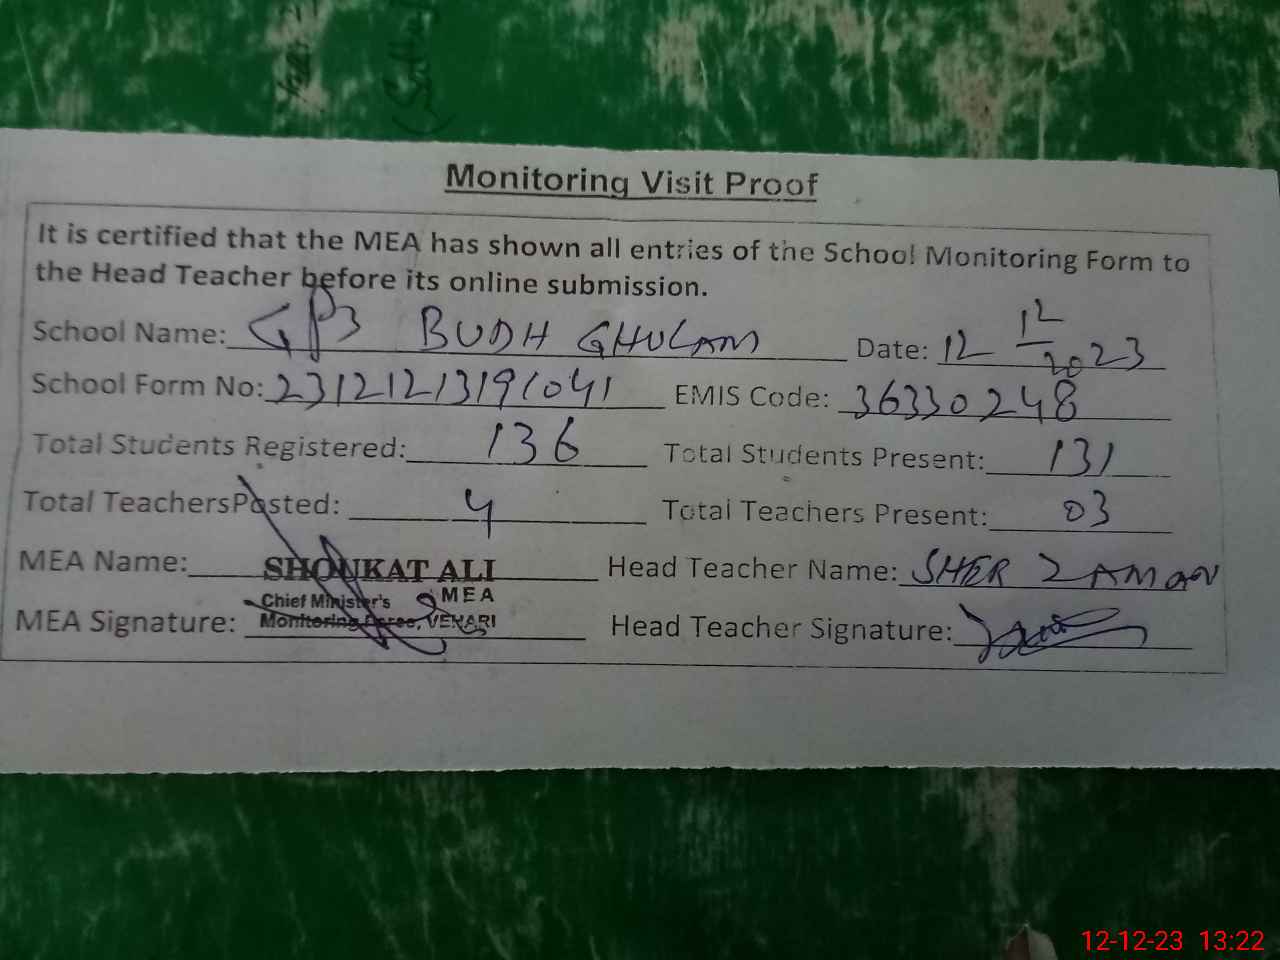 Monitoring Visit Proof
It is certified that the MEA has shown all entries of the School Monitoring Form to
the Head Teacher before its online submission.
School Name: GPS BUDH GHULAM Date: 12 12 2023
School Form No: 231212131911041 EMIS Code: 36330248
Total Students Registered: 136 Total Students Present: 131
Total TeachersPosted: 4 Total Teachers Present: 03
MEA Name: SHOUKAT ALI Head Teacher Name: SHER ZAMAN
MEA
Chief Minister's
MEA Signature: Monitoring Force, VEHARI Head Teacher Signature:
12-12-23 13:22